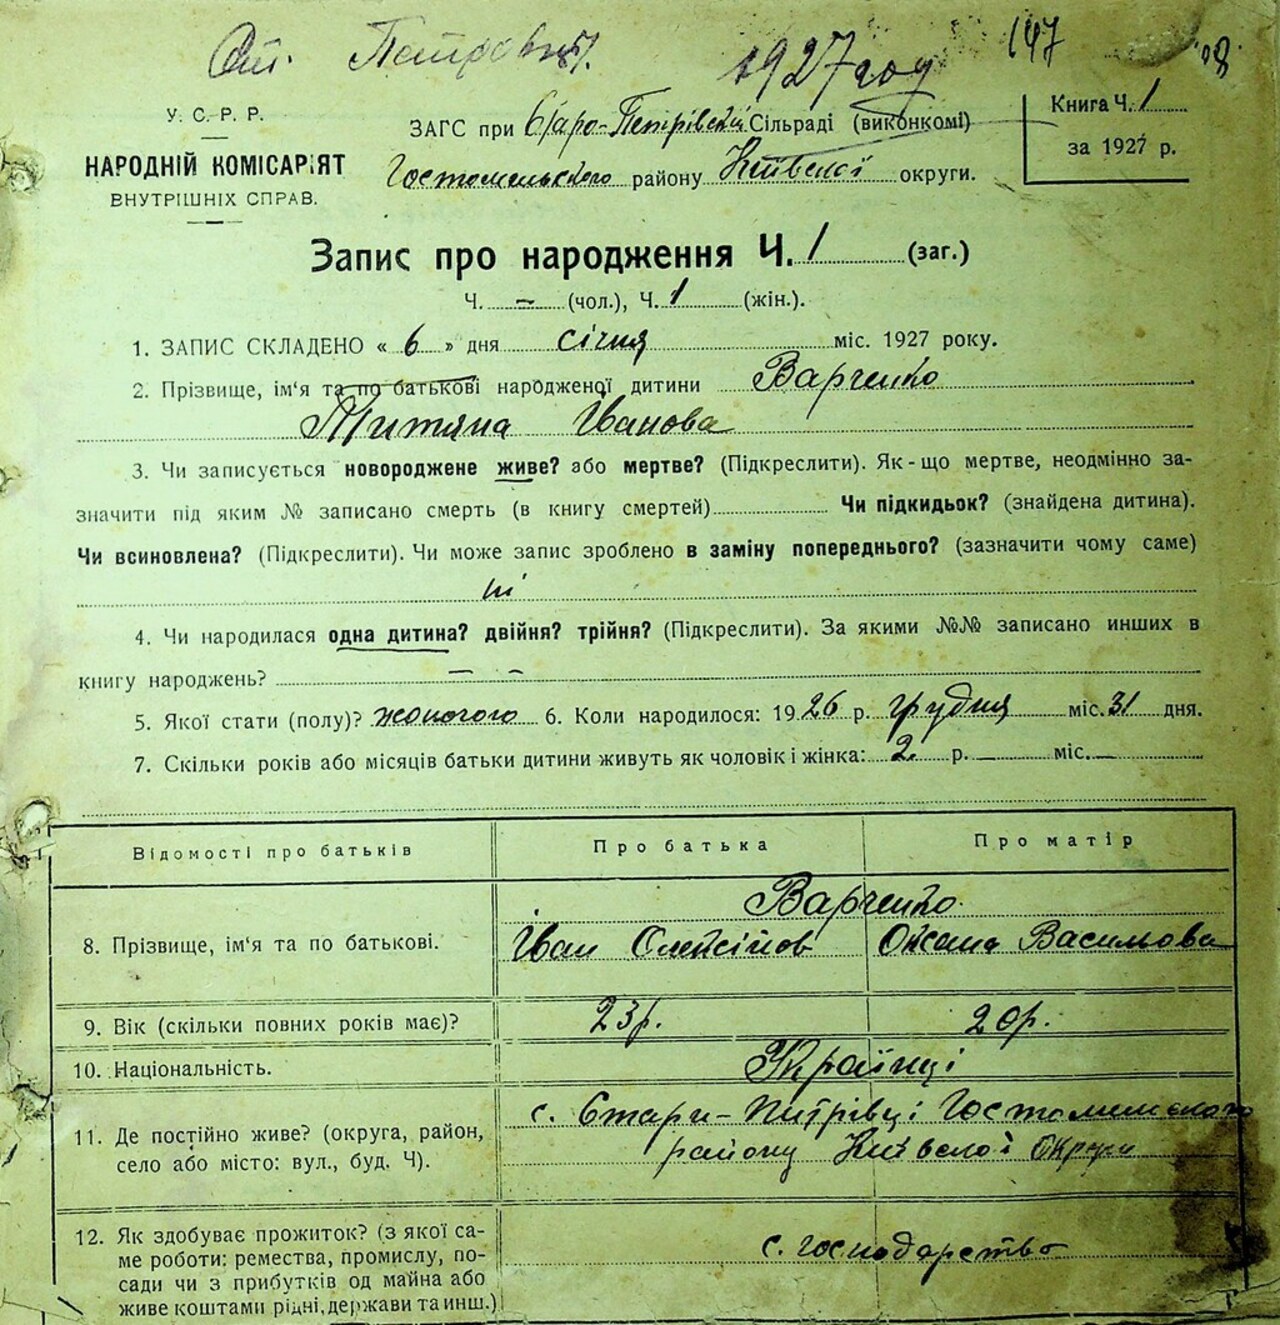 Ст. Петровцы.
1927 год
147
У. С. Р. Р.
НАРОДНІЙ КОМІСАРІЯТ
ВНУТРІШНІХ СПРАВ.
ЗАГС при Старо-Петрівській Сільраді (виконкомі)
Гостомельського району Київської округи.
Книга Ч. 1
за 1927 р.
Запис про народження Ч. 1 (заг.)
Ч. – (чол.), Ч. 1 (жін.).
1. ЗАПИС СКЛАДЕНО « 6 » дня січня міс. 1927 року.
2. Прізвище, ім'я та по батькові народженої дитини Варченко
Титяна Іванова
3. Чи записується новороджене живе? або мертве? (Підкреслити). Як-що мертве, неодмінно за-
значити під яким № записано смерть (в книгу смертей) Чи підкидьок? (знайдена дитина).
Чи всиновлена? (Підкреслити). Чи може запис зроблено в заміну попереднього? (зазначити чому саме)
ні
4. Чи народилася одна дитина? двійня? трійня? (Підкреслити). За якими №№ записано инших в
книгу народжень? – –
5. Якої стати (полу)? жоночого 6. Коли народилося: 1926 р. грудня міс. 31 дня.
7. Скільки років або місяців батьки дитини живуть як чоловік і жінка: 2 р. — міс. —
Відомості про батьків Про батька Про матір
Варченко
8. Прізвище, ім'я та по батькові. Іван Олексійов Оксана Васильова
9. Вік (скільки повних років має)? 23 р. 20 р.
10. Національність. Українці
с. Стари-Питрівці Гостомельського
11. Де постійно живе? (округа, район,
село або місто: вул., буд. Ч). району Київської Округи
12. Як здобуває прожиток? (з якої са-
ме роботи: ремества, промислу, по- с. господарство
сади чи з прибутків од майна або
живе коштами рідні, держави та инш.)